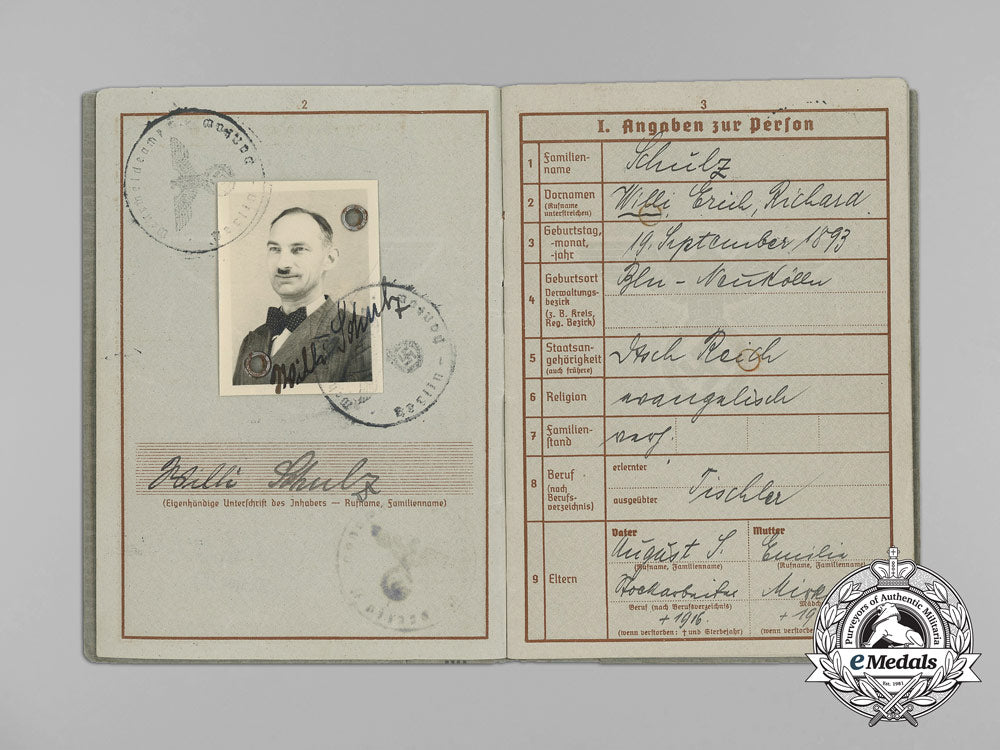 2
Willi Schulz
Willi Schulz
(Eigenhändige Unterschrift des Inhabers — Rufname, Familienname)
3
I. Angaben zur Person
1 Familien-
name
Schulz
2 Vornamen
(Rufname
unterstreichen)
Willi, Erich, Richard.
3 Geburtstag,
-monat,
-jahr
19. September 1893
4 Geburtsort
Verwaltungs-
bezirk
(z. B. Kreis,
Reg. Bezirk)
Bln - Neukölln
5 Staatsan-
gehörigkeit
(auch frühere)
Dtsch Reich
6 Religion
evangelisch
7 Familien-
stand
verh.
8 Beruf
(nach
Berufs-
verzeichnis)
erlernter
ausgeübter
Tischler
9 Eltern
Vater
Mutter
August S.
Emilie
(Rufname, Familienname)
(Rufname, Familienname)
Beruf (nach Berufsverzeichnis)
+ 1916.
+ 19
(wenn verstorben: † und Sterbejahr)
(wenn verstorben
Purveyors of Authentic Militaria
eMedals
Est. 1981